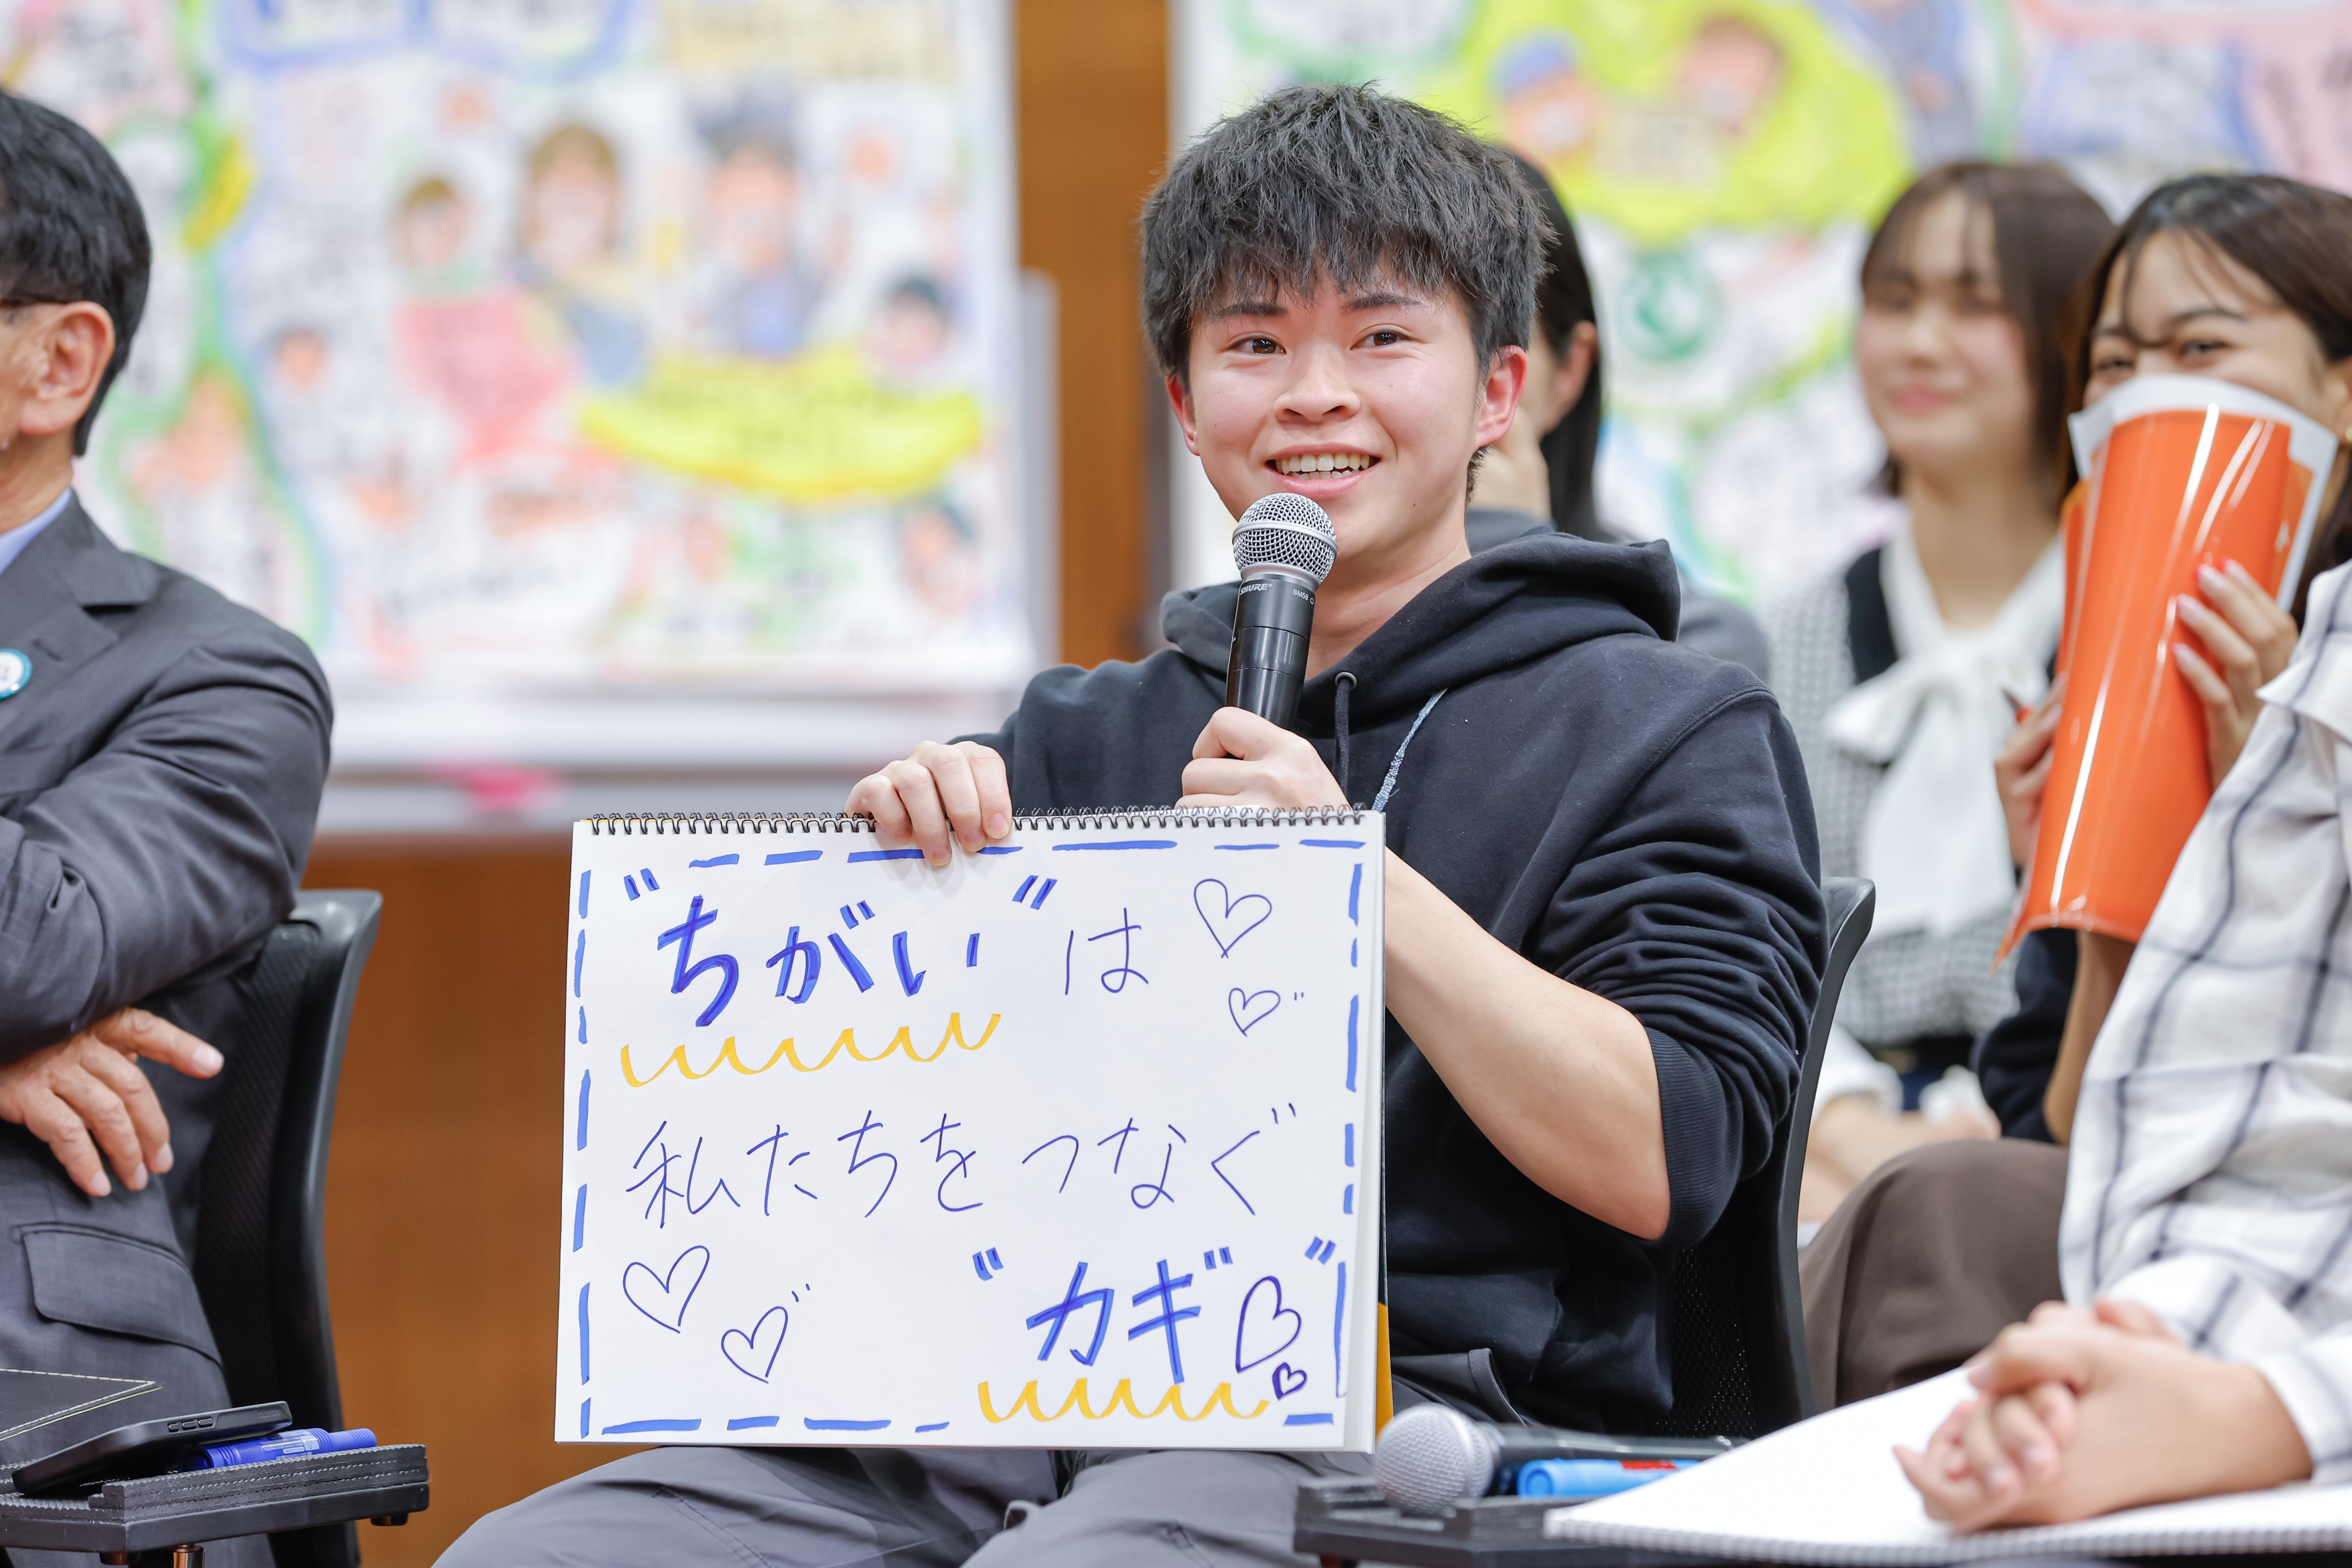 "ちがい"は
私たちをつなぐ
"カギ"
SHURE
SM58